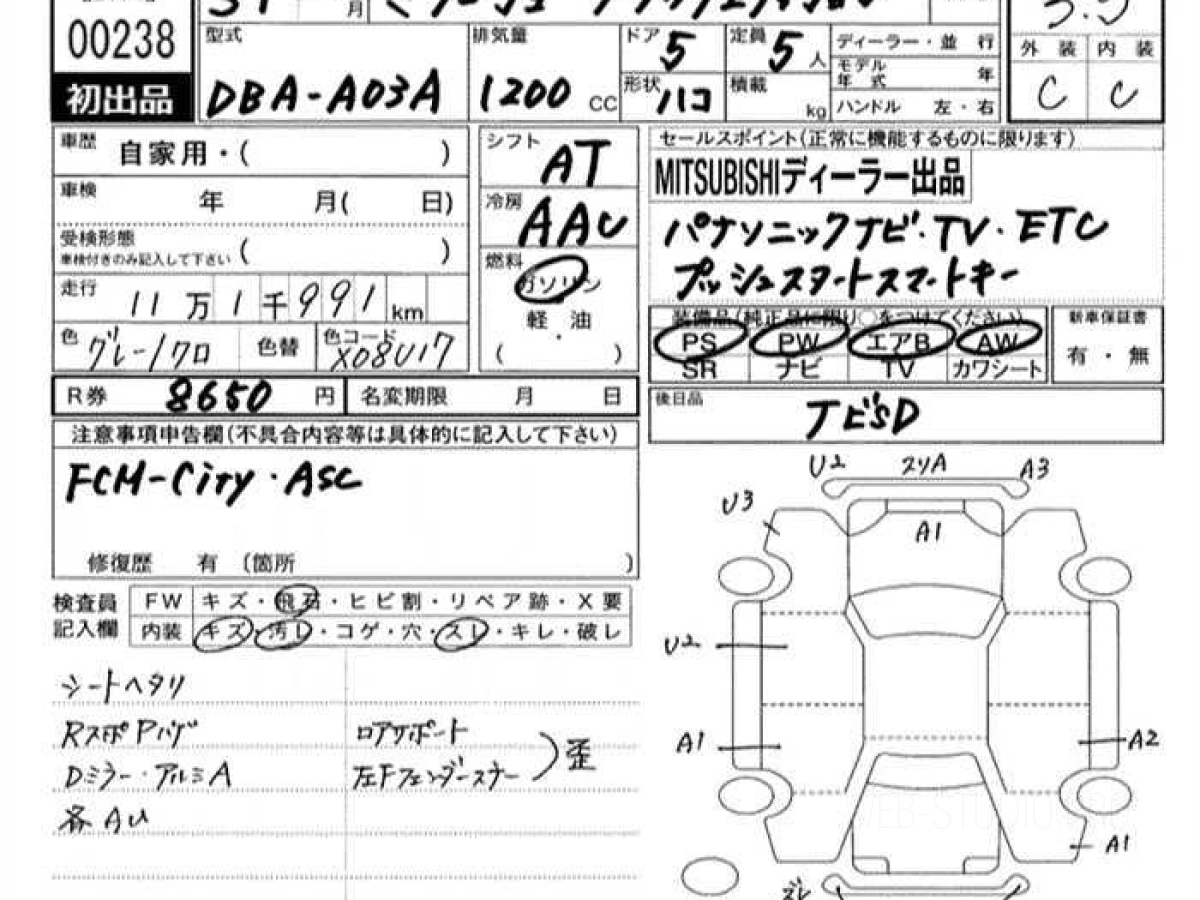 00238
初出品
月
型式
DBA-A03A
排気量
1200 CC
ドア 5
定員 5 人
形状 ハコ
積載 kg
ディーラー・並 行
モデル年式 年
ハンドル 左・右
外 装 内 装
C C
車歴 自家用・( )
車検 年 月( 日)
受検形態 ( )
車検付きのみ記入して下さい
走行 11万1千991 km
色 グレー/クロ 色替 色コード X08U17
シフト AT
冷房 AAC
燃料 ガソリン
軽・油
( )
セールスポイント(正常に機能するものに限ります)
MITSUBISHIディーラー出品
パナソニックナビ・TV・ETC
プッシュスタートスマートキー
装備品(純正品に限り○をつけてください)
PS PW エアB AW
SR ナビ TV カワシート
新車保証書
有・無
R券 8650 円 名変期限 月 日
後日品
注意事項申告欄(不具合内容等は具体的に記入して下さい)
FCM-City・ASC
修復歴 有 (箇所 )
検査員記入欄
FW キズ・飛石・ヒビ割・リペア跡・X要
内装 キズ・汚レ・コゲ・穴・スレ・キレ・破レ
シートヘタリ
RスポPハゲ
Dミラー・アルミA
各AU
ロアサポート
左Fフェンダーステー
歪
U2 スリA A3
U3
A1
U2
A1
A2
A1